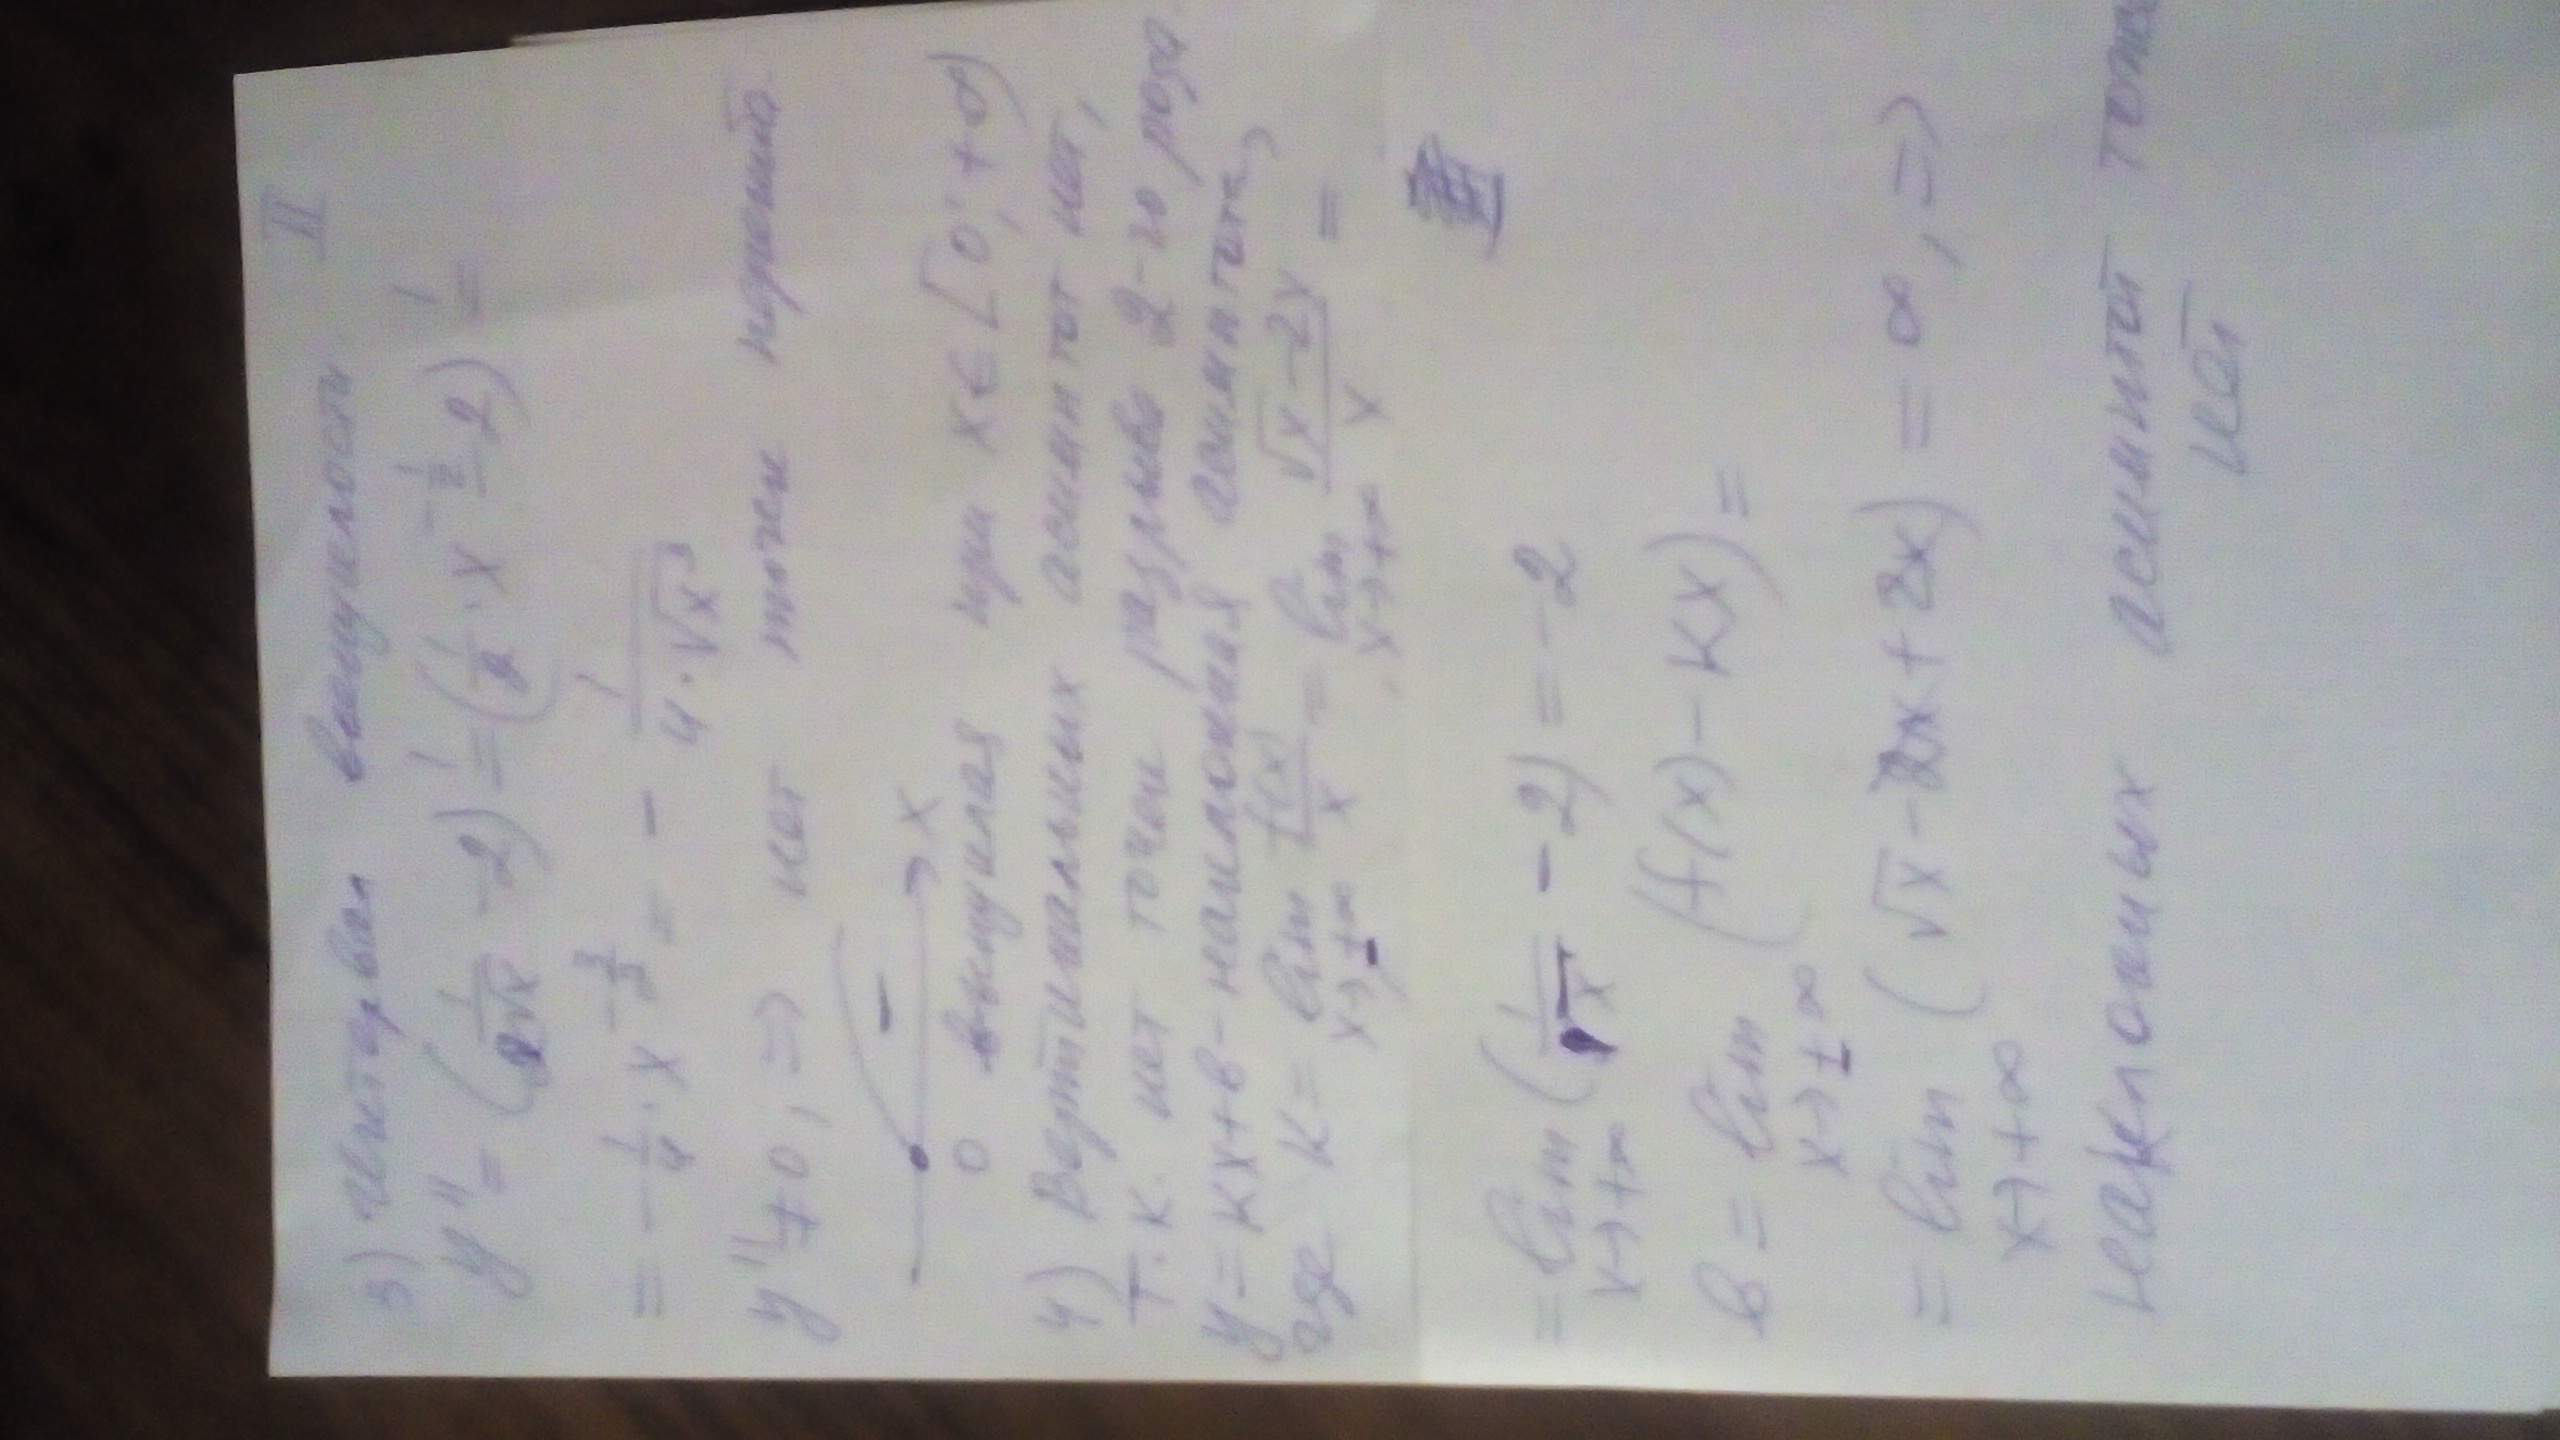 II
3) Интервал выпуклости
y'' = (1/(2√x) - 2)' = (1/2 · x^(-1/2) - 2)' =
= -1/4 · x^(-3/2) = - 1/(4·√x³)
y'' ≠ 0, => нет точек перегиба.
- x
0 выпуклая при x ∈ [0; +∞)
4) Вертикальных асимптот нет,
т.к. нет точек разрыва 2-го рода
y = kx+в - наклонная асимптота,
где k = lim x→±∞ f(x)/x = lim x→+∞ (√x - 2x)/x =
III
= lim x→+∞ (1/√x - 2) = -2
в = lim x→±∞ (f(x) - kx) =
= lim x→+∞ (√x - 2x + 2x) = ∞, =>
наклонных асимптот тоже
нет